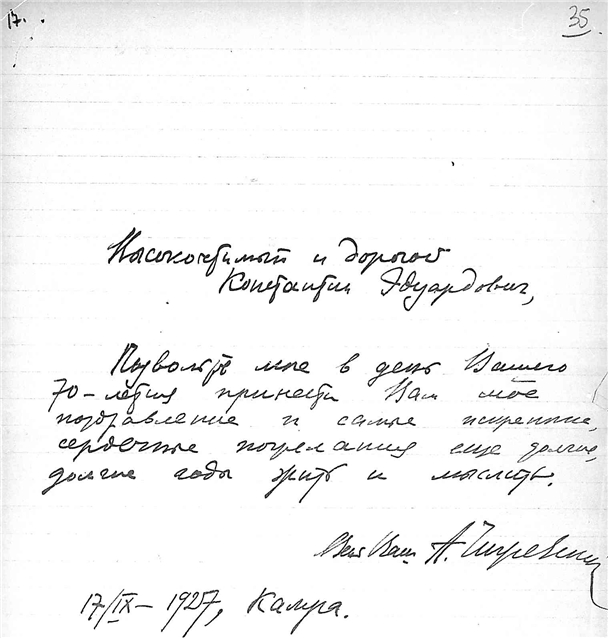 17.
35
Высокочтимый и дорогой
Константин Эдуардович,
Позвольте мне в день Вашего
70-летия принести Вам моё
поздравление и самые искренние,
сердечные пожелания еще долгие,
долгие годы жить и мыслить.
Весь Ваш А. Чижевский
17/IX – 1927, Калуга.